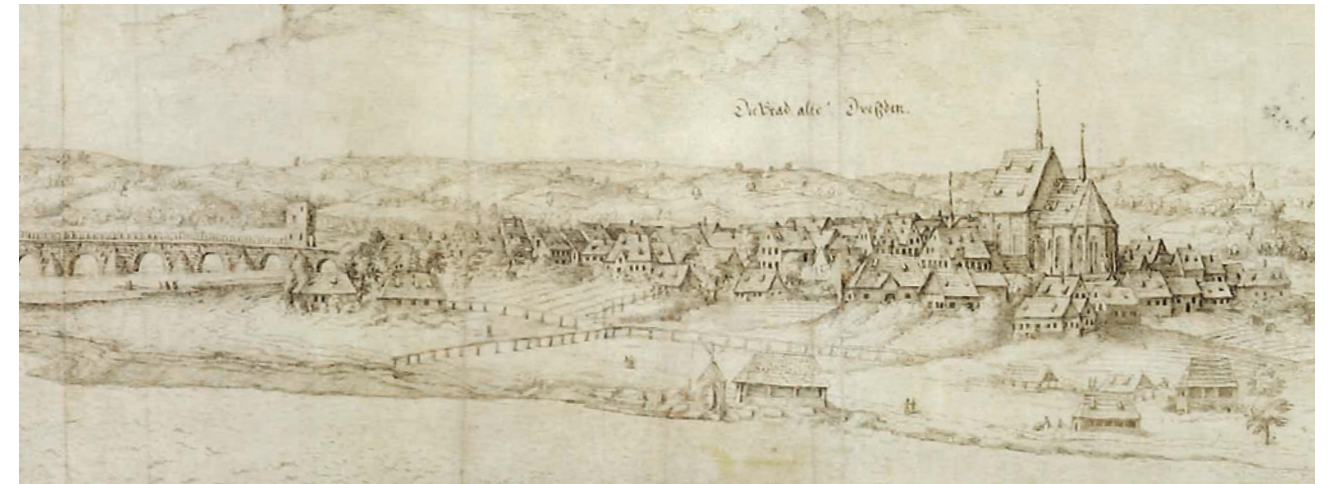 Die Stad alte Dreßden.